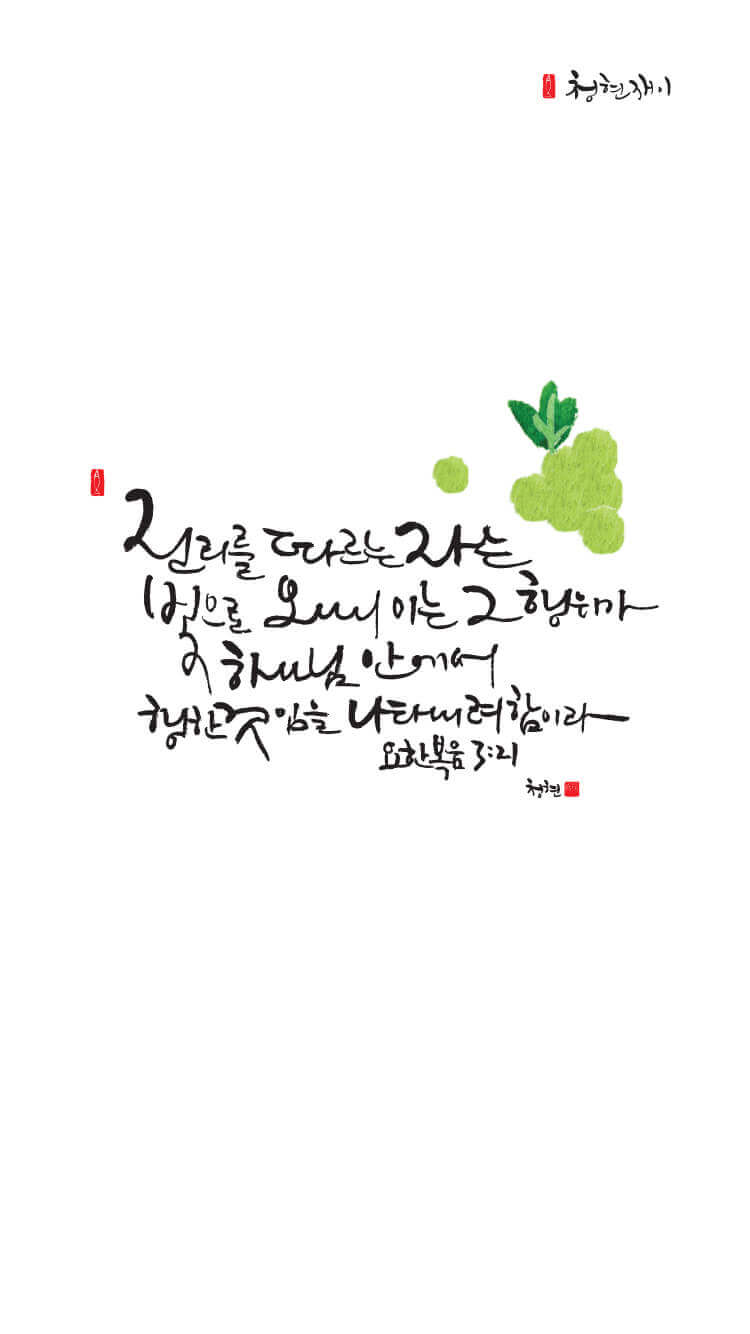 청현재이
진리를 따르는 자는
빛으로 오나니 이는 그 행위가
하나님 안에서
행한 것임을 나타내려 함이라
요한복음 3:21
청현